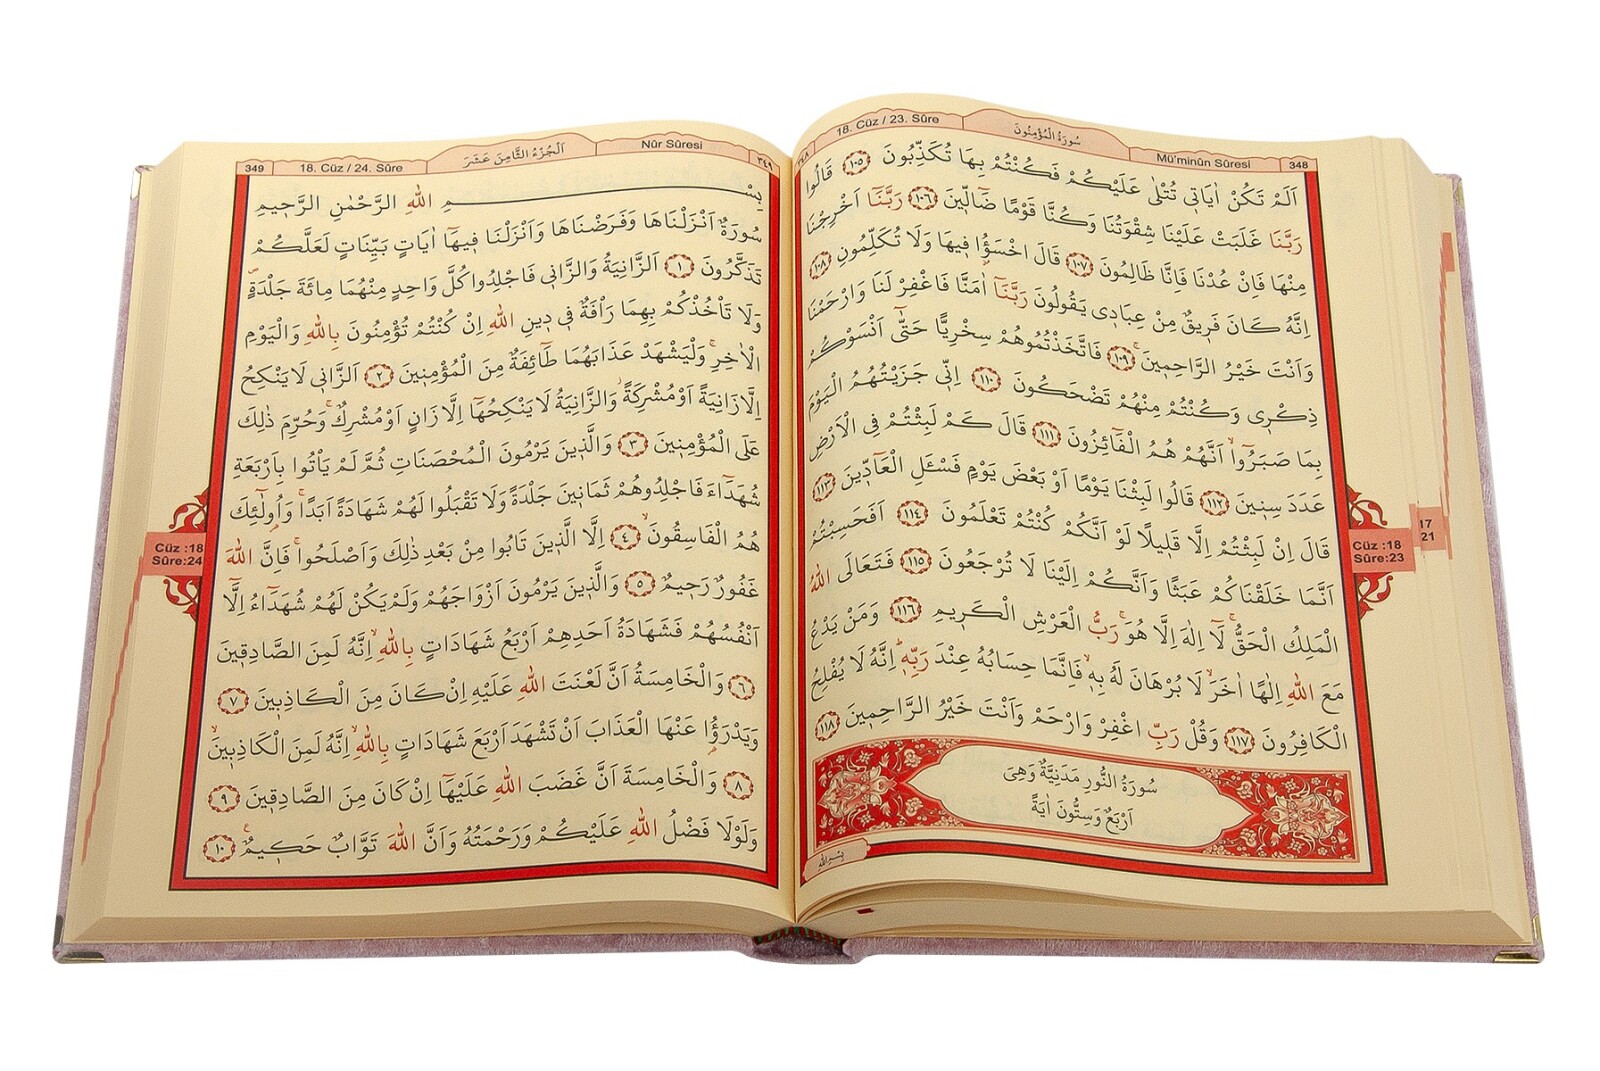 348
Mü'minûn Sûresi
سُورَةُ الْمُؤْمِنُونَ
18. Cüz / 23. Sûre
٣٤٨
اَلَمْ تَكُنْ اٰيَات۪ي تُتْلٰى عَلَيْكُمْ فَكُنْتُمْ بِهَا تُكَذِّبُونَ ﴿١٠٥﴾ قَالُوا
رَبَّنَا غَلَبَتْ عَلَيْنَا شِقْوَتُنَا وَكُنَّا قَوْمًا ضَٓالّ۪ينَ ﴿١٠٦﴾ رَبَّنَٓا اَخْرِجْنَا
مِنْهَا فَاِنْ عُدْنَا فَاِنَّا ظَالِمُونَ ﴿١٠٧﴾ قَالَ اخْسَؤُ۫ا ف۪يهَا وَلَا تُكَلِّمُونِ ﴿١٠٨﴾
اِنَّهُ كَانَ فَر۪يقٌ مِنْ عِبَاد۪ي يَقُولُونَ رَبَّنَٓا اٰمَنَّا فَاغْفِرْ لَنَا وَارْحَمْنَا
وَاَنْتَ خَيْرُ الرَّاحِم۪ينَۚ ﴿١٠٩﴾ فَاتَّخَذْتُمُوهُمْ سِخْرِيًّا حَتّٰٓى اَنْسَوْكُمْ
ذِكْر۪ي وَكُنْتُمْ مِنْهُمْ تَضْحَكُونَ ﴿١١٠﴾ اِنّ۪ي جَزَيْتُهُمُ الْيَوْمَ
بِمَا صَبَرُٓواۙ اَنَّهُمْ هُمُ الْفَٓائِزُونَ ﴿١١١﴾ قَالَ كَمْ لَبِثْتُمْ فِي الْاَرْضِ
عَدَدَ سِن۪ينَ ﴿١١٢﴾ قَالُوا لَبِثْنَا يَوْمًا اَوْ بَعْضَ يَوْمٍ فَسْـَٔلِ الْعَٓادّ۪ينَ ﴿١١٣﴾
قَالَ اِنْ لَبِثْتُمْ اِلَّا قَل۪يلًا لَوْ اَنَّكُمْ كُنْتُمْ تَعْلَمُونَ ﴿١١٤﴾ اَفَحَسِبْتُمْ
اَنَّمَا خَلَقْنَاكُمْ عَبَثًا وَاَنَّكُمْ اِلَيْنَا لَا تُرْجَعُونَ ﴿١١٥﴾ فَتَعَالَى اللّٰهُ
الْمَلِكُ الْحَقُّۚ لَٓا اِلٰهَ اِلَّا هُوَۚ رَبُّ الْعَرْشِ الْكَر۪يمِ ﴿١١٦﴾ وَمَنْ يَدْعُ
مَعَ اللّٰهِ اِلٰهًا اٰخَرَۙ لَا بُرْهَانَ لَهُ بِه۪ۙ فَاِنَّمَا حِسَابُهُ عِنْدَ رَبِّه۪ۜ اِنَّهُ لَا يُفْلِحُ
الْكَافِرُونَ ﴿١١٧﴾ وَقُلْ رَبِّ اغْفِرْ وَارْحَمْ وَاَنْتَ خَيْرُ الرَّاحِم۪ينَ ﴿١١٨﴾
سُورَةُ النُّورِ مَدَنِيَّةٌ وَهِيَ
اَرْبَعٌ وَسِتُّونَ اٰيَةً
بِسْمِ اللّٰهِ
Cüz :18
Sûre:23
17
21
٣٤٩
Nûr Sûresi
اَلْجُزْءُ الثَّامِنَ عَشَرَ
18. Cüz / 24. Sûre
349
بِسْمِ اللّٰهِ الرَّحْمٰنِ الرَّح۪يمِ
سُورَةٌ اَنْزَلْنَاهَا وَفَرَضْنَاهَا وَاَنْزَلْنَا ف۪يهَٓا اٰيَاتٍ بَيِّنَاتٍ لَعَلَّكُمْ
تَذَكَّرُونَ ﴿١﴾ اَلزَّانِيَةُ وَالزَّان۪ي فَاجْلِدُوا كُلَّ وَاحِدٍ مِنْهُمَا مِائَةَ جَلْدَةٍۖ
وَلَا تَأْخُذْكُمْ بِهِمَا رَأْفَةٌ ف۪ي د۪ينِ اللّٰهِ اِنْ كُنْتُمْ تُؤْمِنُونَ بِاللّٰهِ وَالْيَوْمِ
الْاٰخِرِۚ وَلْيَشْهَدْ عَذَابَهُمَا طَٓائِفَةٌ مِنَ الْمُؤْمِن۪ينَ ﴿٢﴾ اَلزَّان۪ي لَا يَنْكِحُ
اِلَّا زَانِيَةً اَوْ مُشْرِكَةًۘ وَالزَّانِيَةُ لَا يَنْكِحُهَٓا اِلَّا زَانٍ اَوْ مُشْرِكٌۚ وَحُرِّمَ ذٰلِكَ
عَلَى الْمُؤْمِن۪ينَ ﴿٣﴾ وَالَّذ۪ينَ يَرْمُونَ الْمُحْصَنَاتِ ثُمَّ لَمْ يَأْتُوا بِاَرْبَعَةِ
شُهَدَٓاءَ فَاجْلِدُوهُمْ ثَمَان۪ينَ جَلْدَةً وَلَا تَقْبَلُوا لَهُمْ شَهَادَةً اَبَدًاۚ وَاُو۬لٰٓئِكَ
هُمُ الْفَاسِقُونَۙ ﴿٤﴾ اِلَّا الَّذ۪ينَ تَابُوا مِنْ بَعْدِ ذٰلِكَ وَاَصْلَحُواۚ فَاِنَّ اللّٰهَ
غَفُورٌ رَح۪يمٌ ﴿٥﴾ وَالَّذ۪ينَ يَرْمُونَ اَزْوَاجَهُمْ وَلَمْ يَكُنْ لَهُمْ شُهَدَٓاءُ اِلَّٓا
اَنْفُسُهُمْ فَشَهَادَةُ اَحَدِهِمْ اَرْبَعُ شَهَادَاتٍ بِاللّٰهِۙ اِنَّهُ لَمِنَ الصَّادِق۪ينَ
﴿٦﴾ وَالْخَامِسَةُ اَنَّ لَعْنَتَ اللّٰهِ عَلَيْهِ اِنْ كَانَ مِنَ الْكَاذِب۪ينَ ﴿٧﴾
وَيَدْرَؤُ۬ا عَنْهَا الْعَذَابَ اَنْ تَشْهَدَ اَرْبَعَ شَهَادَاتٍ بِاللّٰهِۙ اِنَّهُ لَمِنَ الْكَاذِب۪ينَۙ
﴿٨﴾ وَالْخَامِسَةَ اَنَّ غَضَبَ اللّٰهِ عَلَيْهَٓا اِنْ كَانَ مِنَ الصَّادِق۪ينَ ﴿٩﴾
وَلَوْلَا فَضْلُ اللّٰهِ عَلَيْكُمْ وَرَحْمَتُهُ وَاَنَّ اللّٰهَ تَوَّابٌ حَك۪يمٌ۟ ﴿١٠﴾
Cüz :18
Sûre:24